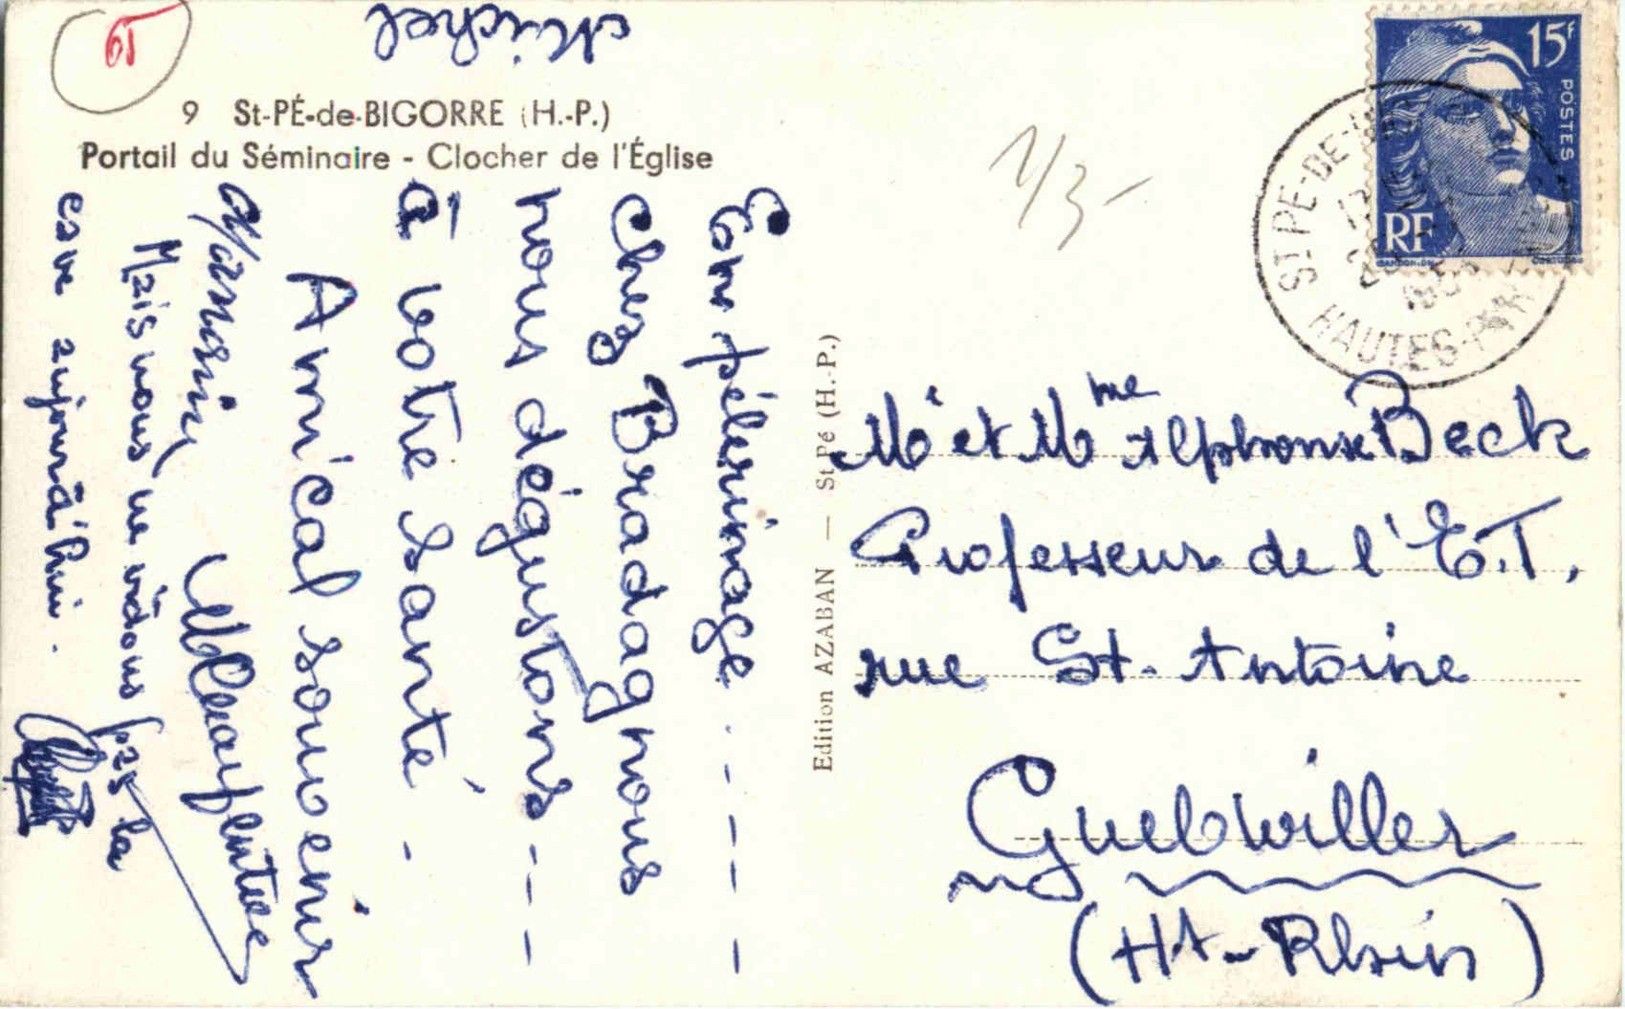 9 St-PÉ-de-BIGORRE (H.-P.)
Portail du Séminaire - Clocher de l'Église
En pélerinage
chez Bradagnous
nous dégustons
à votre santé.
Amical souvenir
Mais nous ne vidons pas la
cave aujourd'hui.
Michel
Edition AZABAN — St Pé (H.-P.)
15f
POSTES
RF
ST PE-DE-
HAUTES-
1/3-
Mr et Mme Alphonse Beck
Professeur de l'E.T.
rue St-Antoine
Guebwiller
(Ht-Rhin)